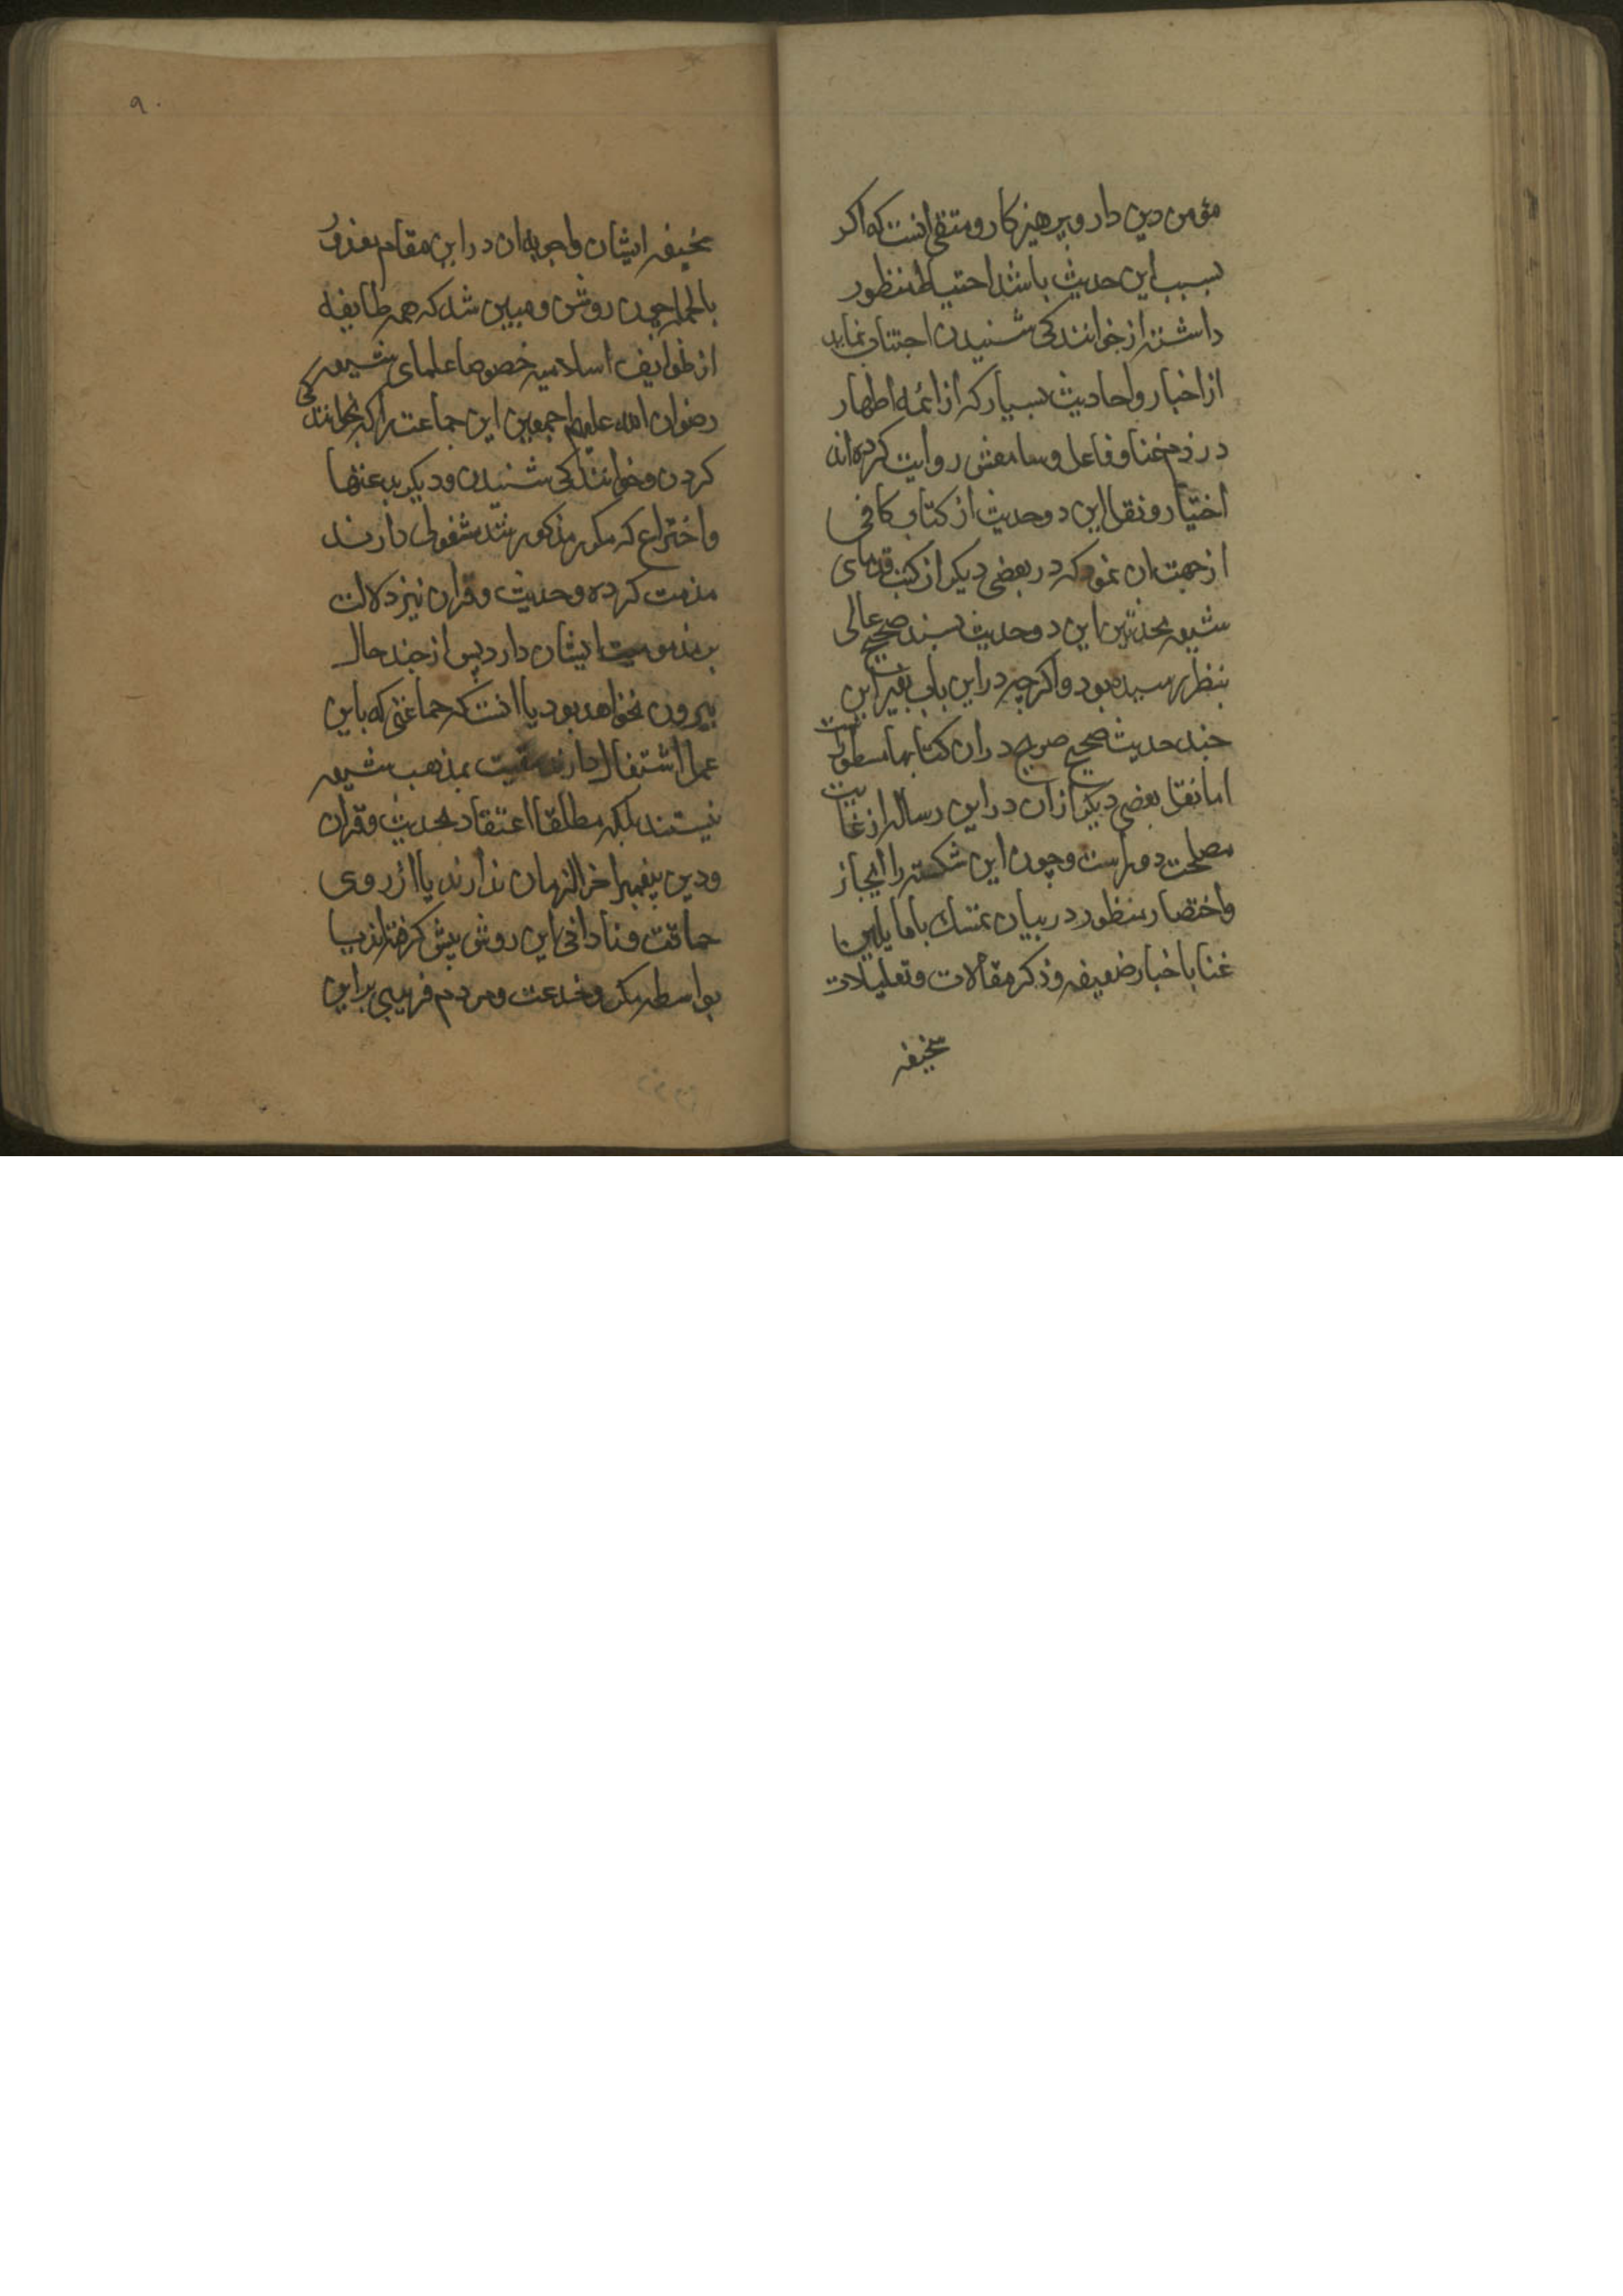 مؤمن دین دار و پرهیزکار و متقی انست که اکر
بسبب این حدیث باشد احتیاط منظور
داشته از خوانندکی شنیدن اجتناب نماید
از اخبار و احادیث بسیار که از ائمه اطهار
در ذم غنا و فاعل و سامعش روایت کرده اند
اختیار و نقل این دو حدیث از کتاب کافی
از جهت ان نمود که در بعضی دیکر از کتب قدمای
شیعه محدثین این دو حدیث بسند صحیح عالی
بنظر رسیده بود و اکر چه در این باب بغیر این
چند حدیث صحیح صریح در ان کتابها مسطور است
اما نقل بعضی دیکر از ان در این رساله از غایت
مصلحت دور است و چون این شکسته را ایجاز
و اختصار منظور در بیان تمسك با مایلین
غنا باخبار ضعیفه و ذکر مقالات و تعلیلات
سخیفه
۹۰
سخیفه ایشان و اجوبه ان در این مقام معذور
بالجمله چون روشن و مبین شد که همه طایفه
از طوایف اسلامیه خصوصا علمای شیعه
رضوان الله علیهم اجمعین این جماعت را که بخوانندکی
کردن و خوانندکی شنیدن و دیکر بدعتها
و اختراع که مکرر مذکور شد مشغولی دارند
مذمت کرده و حدیث و قران نیز دلالت
بر مذمومیت ایشان دارد پس از چند حال
بیرون نخواهد بود یا انست که جماعتی که باین
عمل اشتغال دارند مقیت بمذهب شیعه
نیستند بلکه مطلقا اعتقاد بحدیث و قران
و دین پیغمبر اخر الزمان ندارند یا از روی
حماقت و نادانی این روش پیش کرفته اند یا
بواسطه مکر و خدعت و مردم فریبی بر این